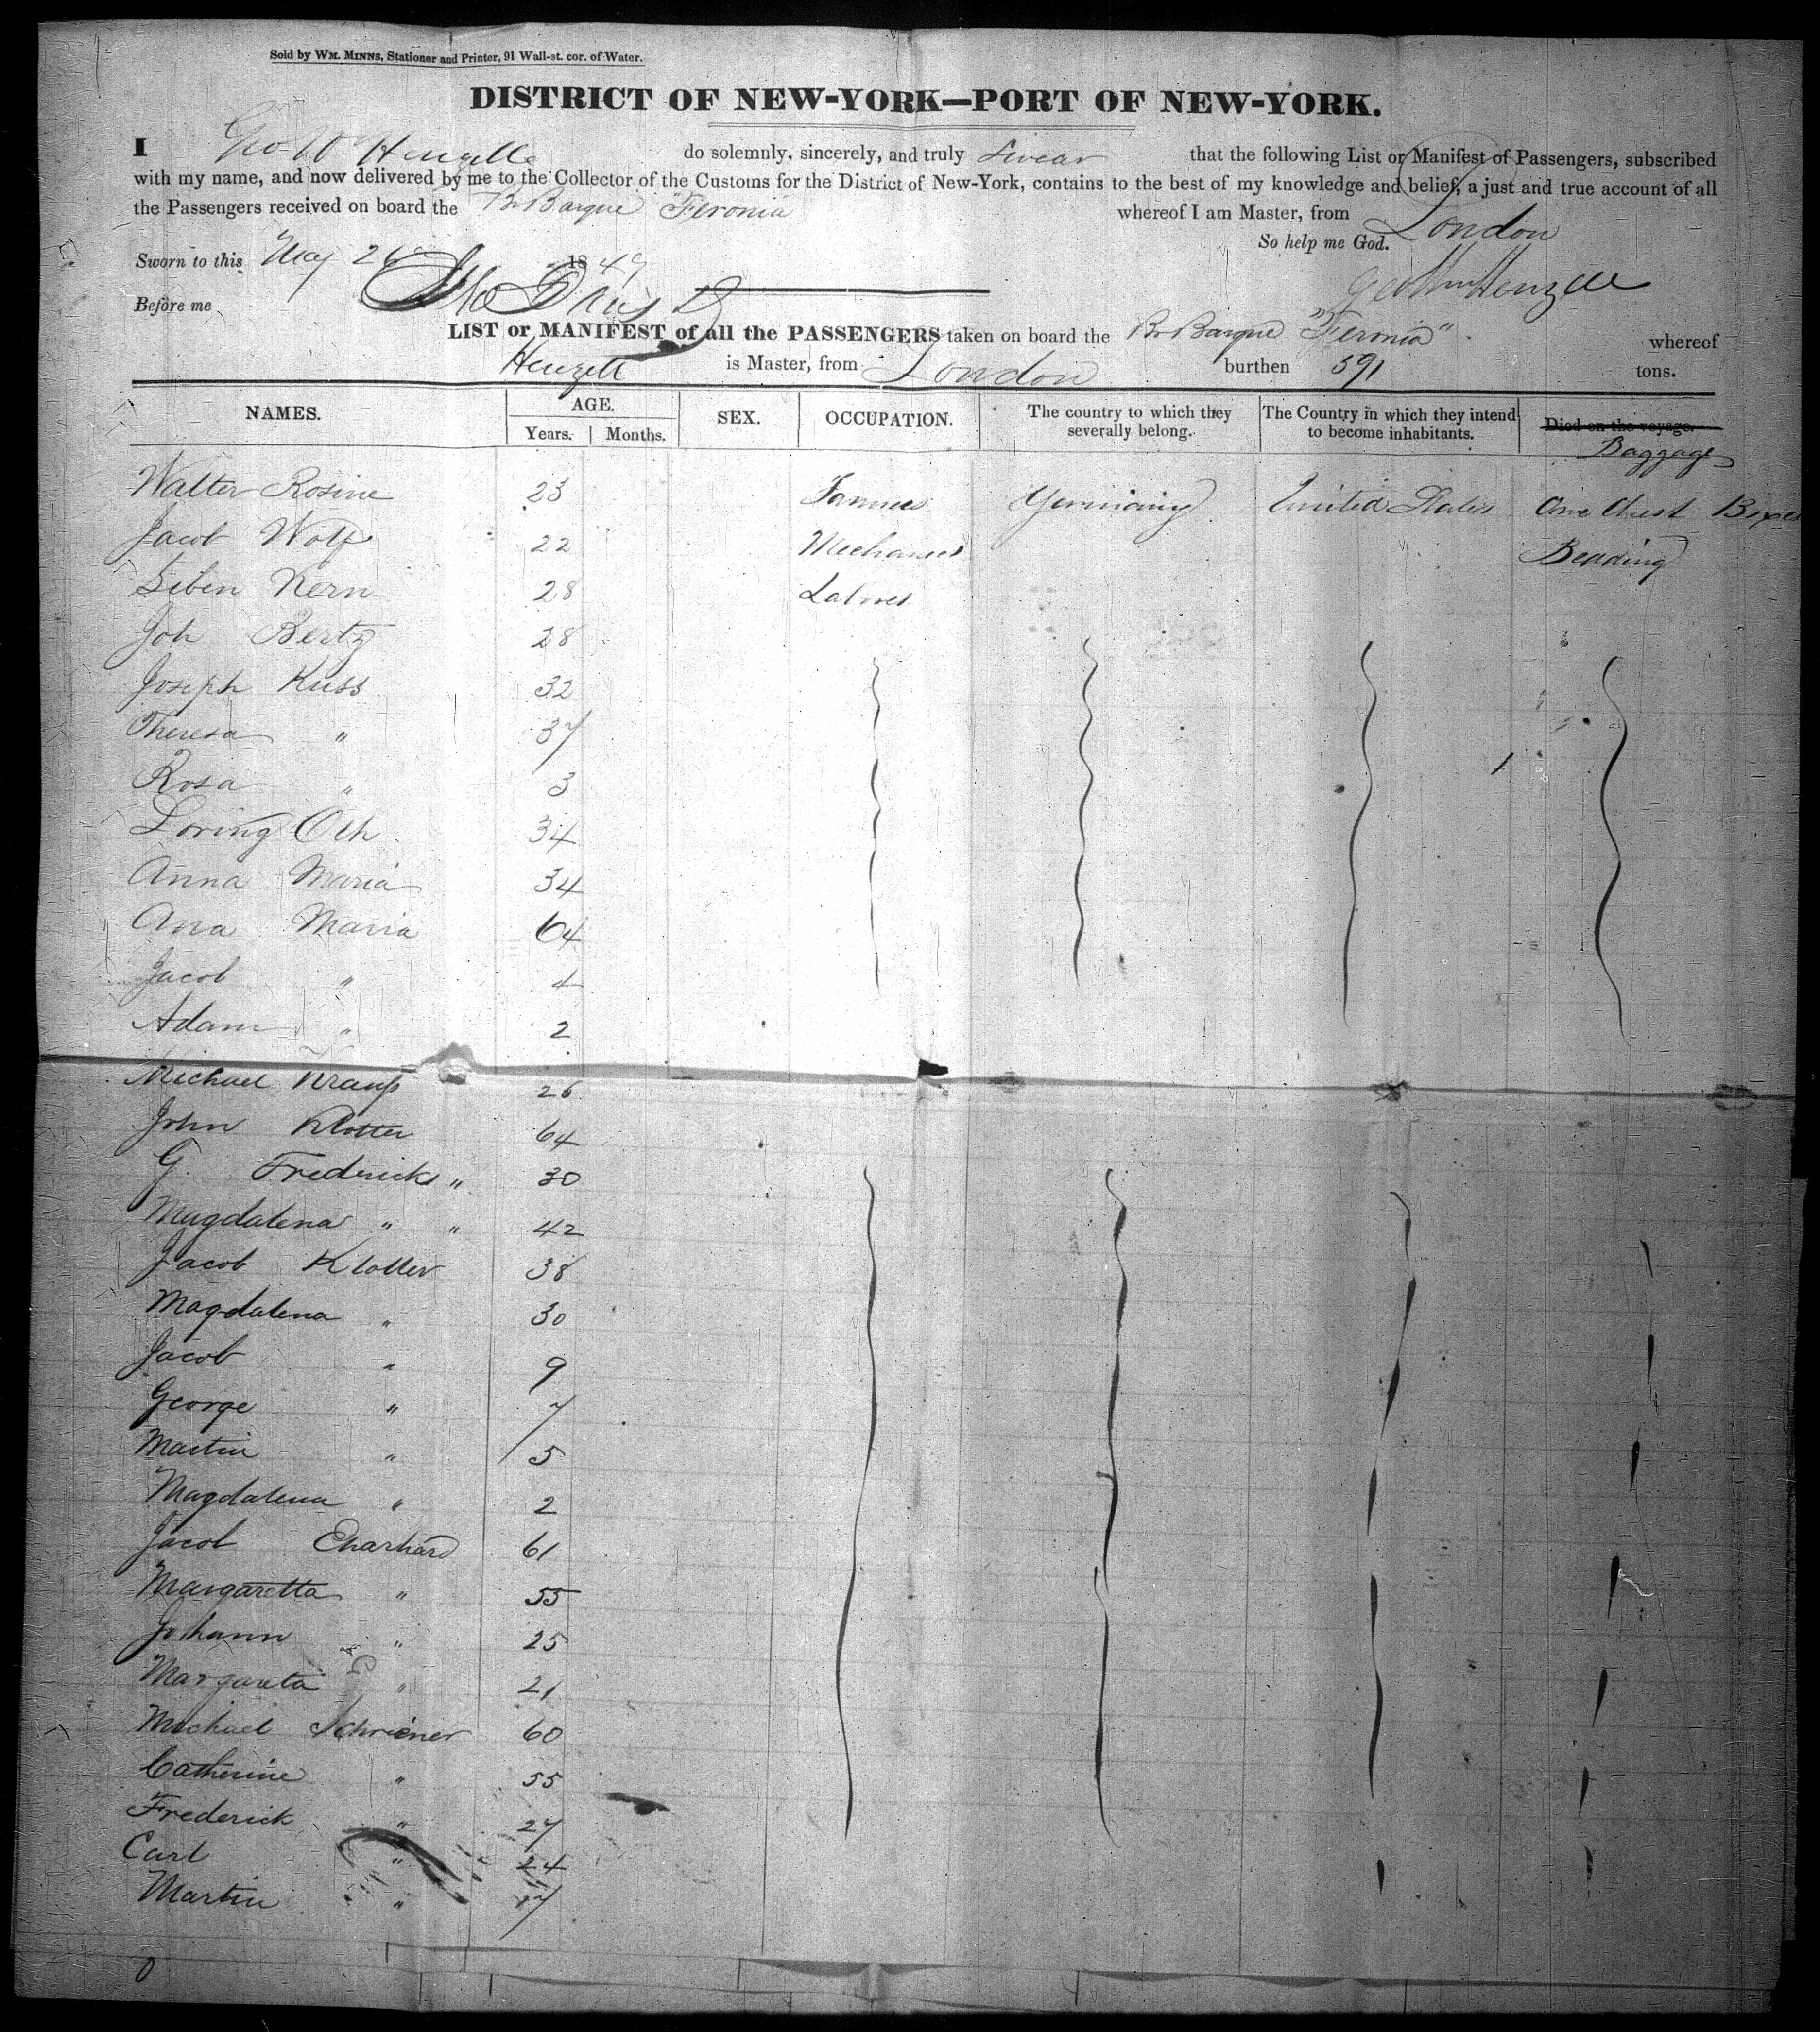 Sold by WM. MINNS, Stationer and Printer, 91 Wall-st. cor. of Water.
DISTRICT OF NEW-YORK—PORT OF NEW-YORK.
I Geo W Henzell do solemnly, sincerely, and truly swear that the following List or Manifest of Passengers, subscribed
with my name, and now delivered by me to the Collector of the Customs for the District of New-York, contains to the best of my knowledge and belief, a just and true account of all
the Passengers received on board the Br Barque Feronia whereof I am Master, from London
So help me God.
Sworn to this May 26 1849
Geo Wm Henzell
Before me
LIST or MANIFEST of all the PASSENGERS taken on board the Br Barque "Feronia" whereof
Henzell is Master, from London burthen 591 tons.
NAMES. AGE. Years. Months. SEX. OCCUPATION. The country to which they severally belong. The Country in which they intend to become inhabitants. Died on the voyage. Baggage
Walter Rosine 23 Farmers Germany United States One Chest Boxes
Jacob Wolf 22 Mechanics Beading
Siben Kern 28 Labores
Joh Bertz 28
Joseph Kuss 32
Theresa " 37
Rosa " 3
Loring Oth 34
Anna Maria 34
Ana Maria 64
Jacob " 4
Adam " 2
Michael Krauss 26
John Klotter 64
G. Fredericks " 30
Magdalena " " 42
Jacob Klotter 38
Magdalena " 30
Jacob " 9
George " 7
Martin " 5
Magdalena " 2
Jacob Eharhard 61
Margaretta " 55
Johann " 25
Margareta " 21
Michael Schriener 60
Catherine " 55
Frederick " 27
Carl " 24
Martin " 17
0